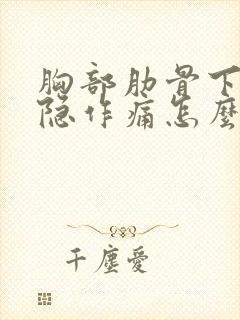 胸部肋骨下
隐作痛怎麼
千塵愛